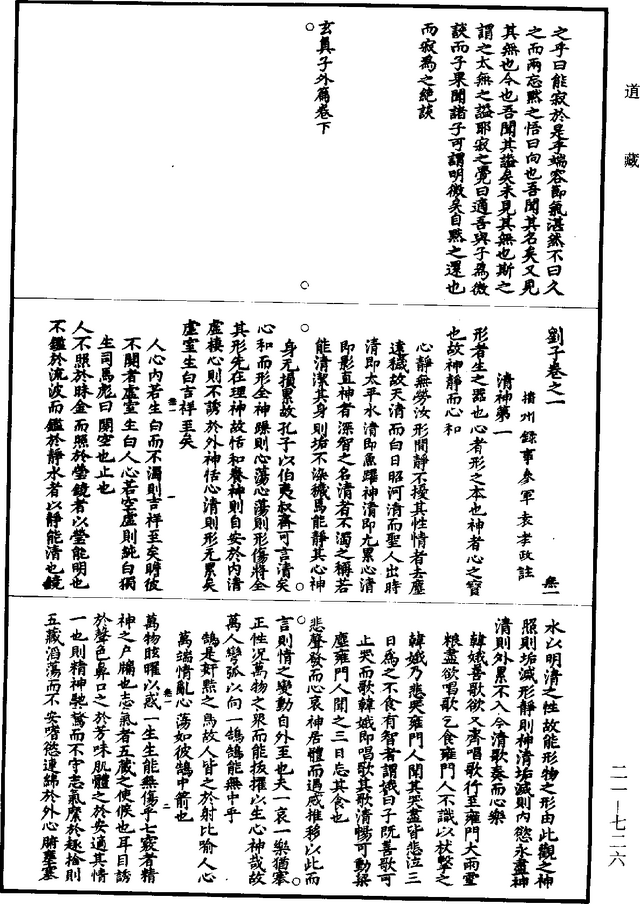 道藏
之乎曰能寂於是乎端容節氣湛然不曰久
之而兩忘黙之悟曰向也吾聞其名矣又見
其無也今也吾聞其謚矣未見其無也斯之
謂之太無之謚耶寂之覺曰適吾與子爲微
談而子果聞諸子可謂明微矣自黙之還也
而寂爲之絶談
玄眞子外篇卷下
劉子卷之一
無一
播州錄事參軍袁孝政註
清神第一
形者生之器也心者形之本也神者心之寶
也故神靜而心和
心靜無勞汝形閒靜不擾其性情者去塵
遠穢故天清而白日昭河清而聖人出時
清即太平水清即魚躍神清即無累心清
即影直神者深智之名清者不濁之稱若
能清潔其身則垢不染穢焉能靜其心神
身无損累故孔子以伯夷叔齊可言清矣
心和而形全神躁則心蕩心蕩則形傷將全
其形先在理神故恬和養神則自安於內清
虛棲心則不誘於外神恬心清則形无累矣
虛室生白吉祥至矣
人心內若生白而不濁則吉祥至矣瞻彼
不闋者虛室生白人心若空虛則純白獨
生司馬彪曰闋空也止也
人不照於昧金而照於瑩鏡者以瑩能明也
不鑑於流波而鑑於靜水者以靜能清也鏡
水以明清之性故能形物之形由此觀之神
照則垢滅形靜則神清垢滅則內慾永盡神
清則外累不入今清歌奏而心樂
韓娥善歌欲又齊唱歌行至雍門大雨雪
粮盡欲唱歌乞食雍門人不識以杖擊之
韓娥乃悲哭雍門人聞其哭盡皆悲泣三
日爲之不食有智者謂娥曰子旣善歌可
止哭而歌韓娥即唱歌其歌清暢可動梁
塵雍門人聞之三日忘其食也
悲聲發而心哀神居體而遇感推移以此而
言則情之變動自外至也夫一哀一樂猶搴
正性況萬物之衆而能拔擢以生心神哉故
萬人彎弧以向一鵠鵠能無中乎
鵠是奸黙之鳥故人皆之於射比喻人心
萬端情亂心蕩如彼鵠中箭也
萬物眩曜以惑一生生能無傷乎七竅者精
神之户牖也志氣者五藏之使候也耳目誘
於聲色鼻口之於芳味肌體之於安適其情
一也則精神馳騖而不守志氣縻於趣捨則
五藏滔蕩而不安嗜慾連綿於外心腑壅塞
二一—七二六